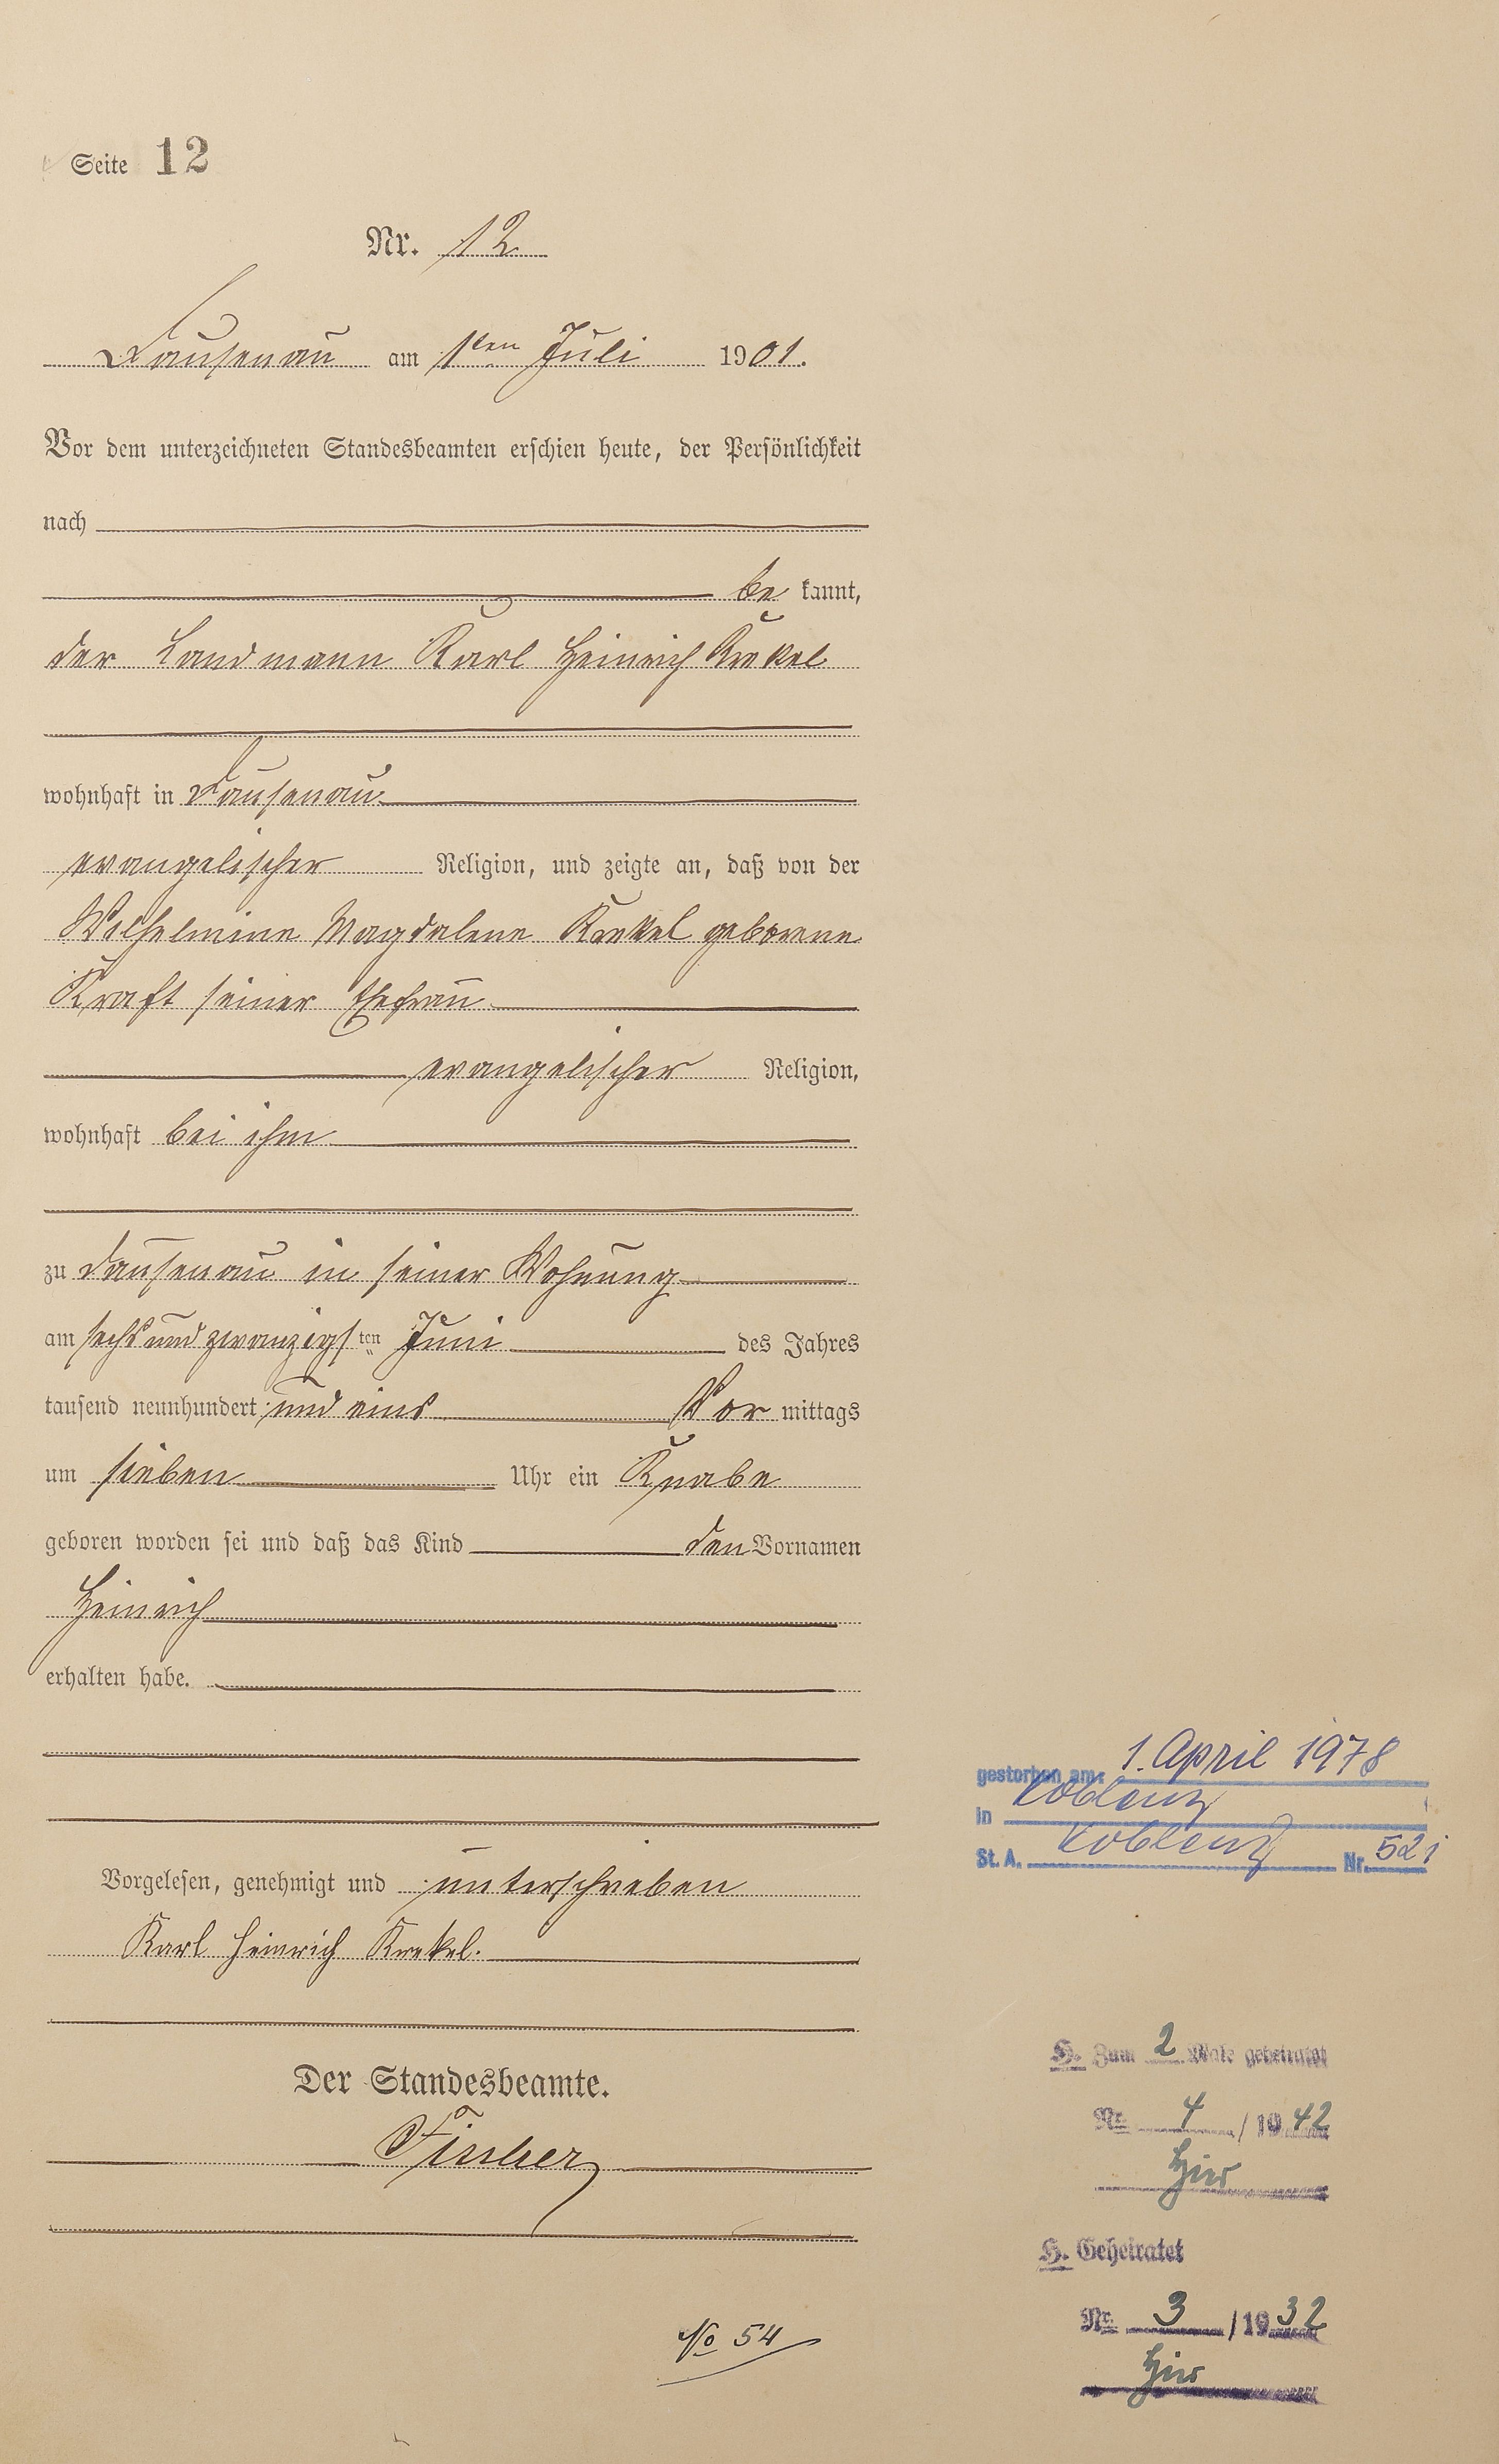 Seite 12
Nr. 12
Dausenau am 1ten Juli 1901.
Vor dem unterzeichneten Standesbeamten erschien heute, der Persönlichkeit
nach
be kannt,
der Landmann Karl Heinrich Krekel
wohnhaft in Dausenau
evangelischer Religion, und zeigte an, daß von der
Wilhelmine Magdalene Krekel geborene
Kraft seiner Ehefrau
evangelischer Religion,
wohnhaft bei ihm
zu Dausenau in seiner Wohnung
am sechs und zwanzigsten Juni des Jahres
tausend neunhundert und eins Vor mittags
um sieben Uhr ein Knabe
geboren worden sei und daß das Kind den Vornamen
Heinrich
erhalten habe.
Vorgelesen, genehmigt und unterschrieben
Karl Heinrich Krekel.
Der Standesbeamte.
Fischer
No 54
gestorben am: 1. April 1978
in Koblenz
St. A. Koblenz Nr. 521
H. Zum 2 Male geheiratet
Nr. 4 / 1942
hier
H. Geheiratet
Nr. 3 / 1932
hier